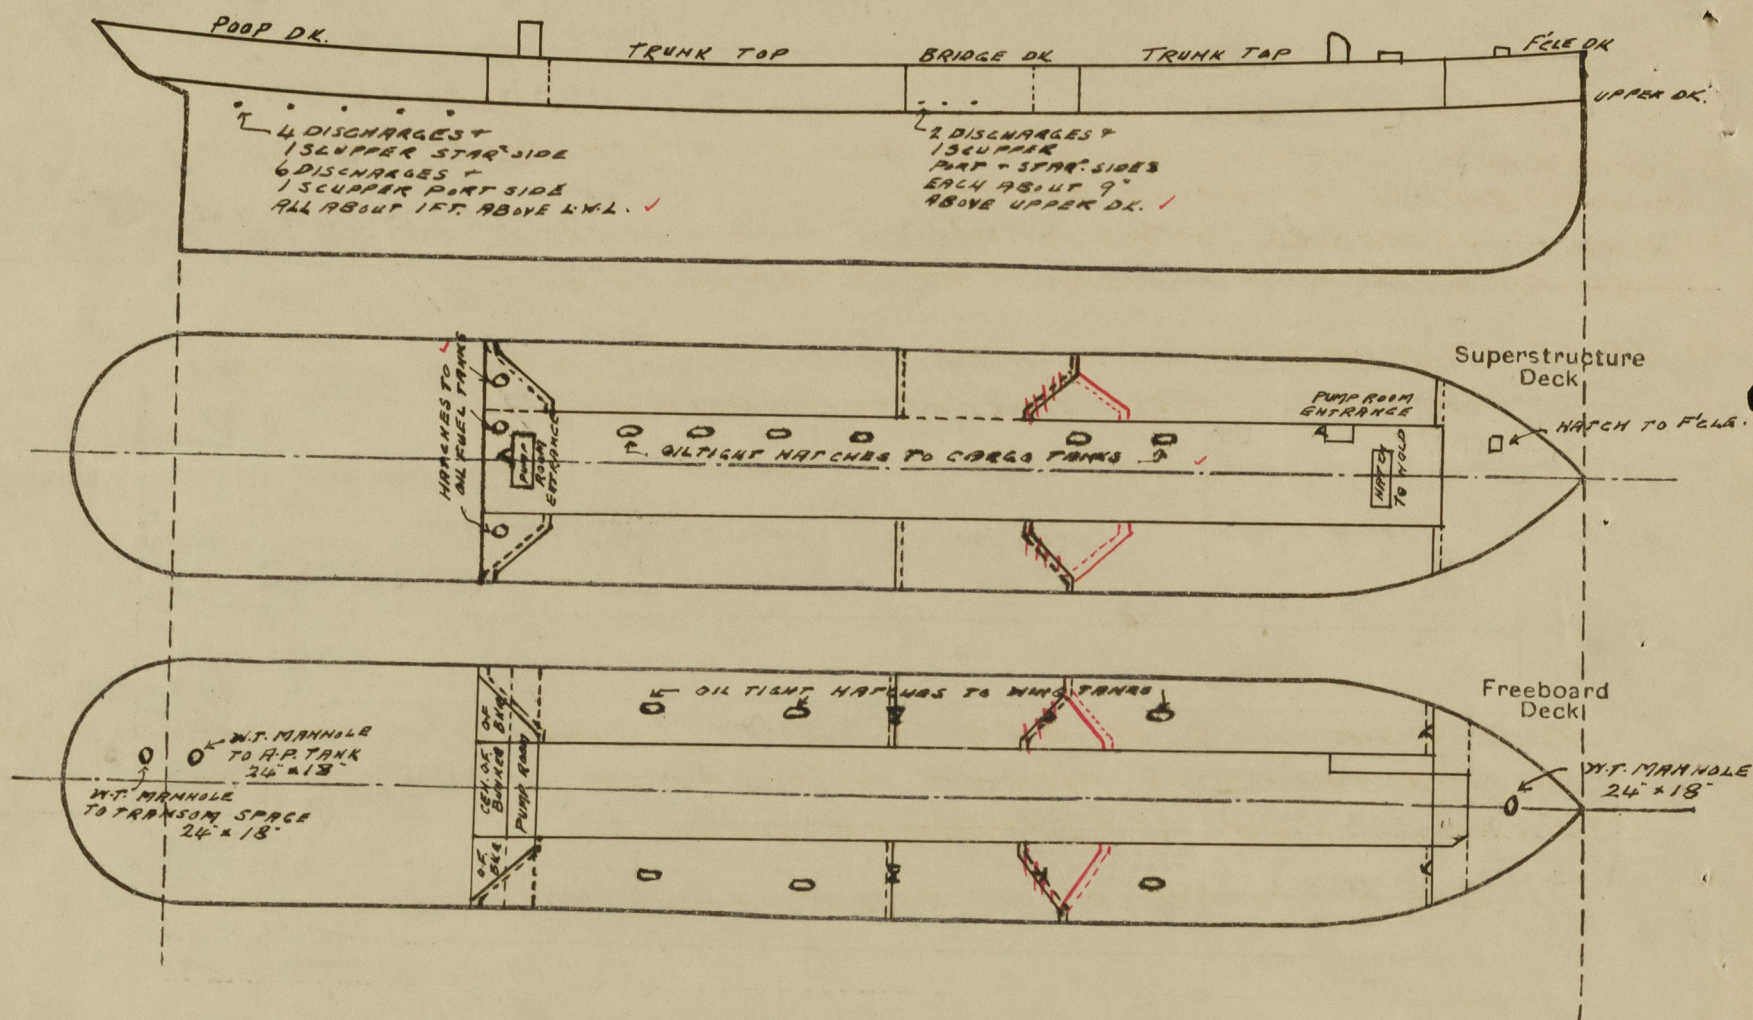 POOP DK.
TRUNK TOP
BRIDGE DK
TRUNK TOP
F'CLE DK
UPPER DK.
4 DISCHARGES +
1 SCUPPER STARD SIDE
6 DISCHARGES +
1 SCUPPER PORT SIDE
ALL ABOUT 1FT. ABOVE L.W.L.
2 DISCHARGES +
1 SCUPPER
PORT + STARD. SIDES
EACH ABOUT 9"
ABOVE UPPER DK.
Superstructure
Deck
HATCHES TO
OIL FUEL TANKS
PUMP
ROOM
ENTRANCE
OILTIGHT HATCHES TO CARGO TANKS
PUMP ROOM
ENTRANCE
HATCH
TO HOLD
HATCH TO F'CLE.
Freeboard
Deck
OIL TIGHT HATCHES TO WING TANKS
W.T. MANHOLE
TO A.P. TANK
24" x 18"
W.T. MANHOLE
TO TRANSOM SPACE
24" x 18"
O.F.
BKR
CEN. O.F.
BUNKER
PUMP ROOM
O.F.
BKR
W.T. MANHOLE
24" x 18"